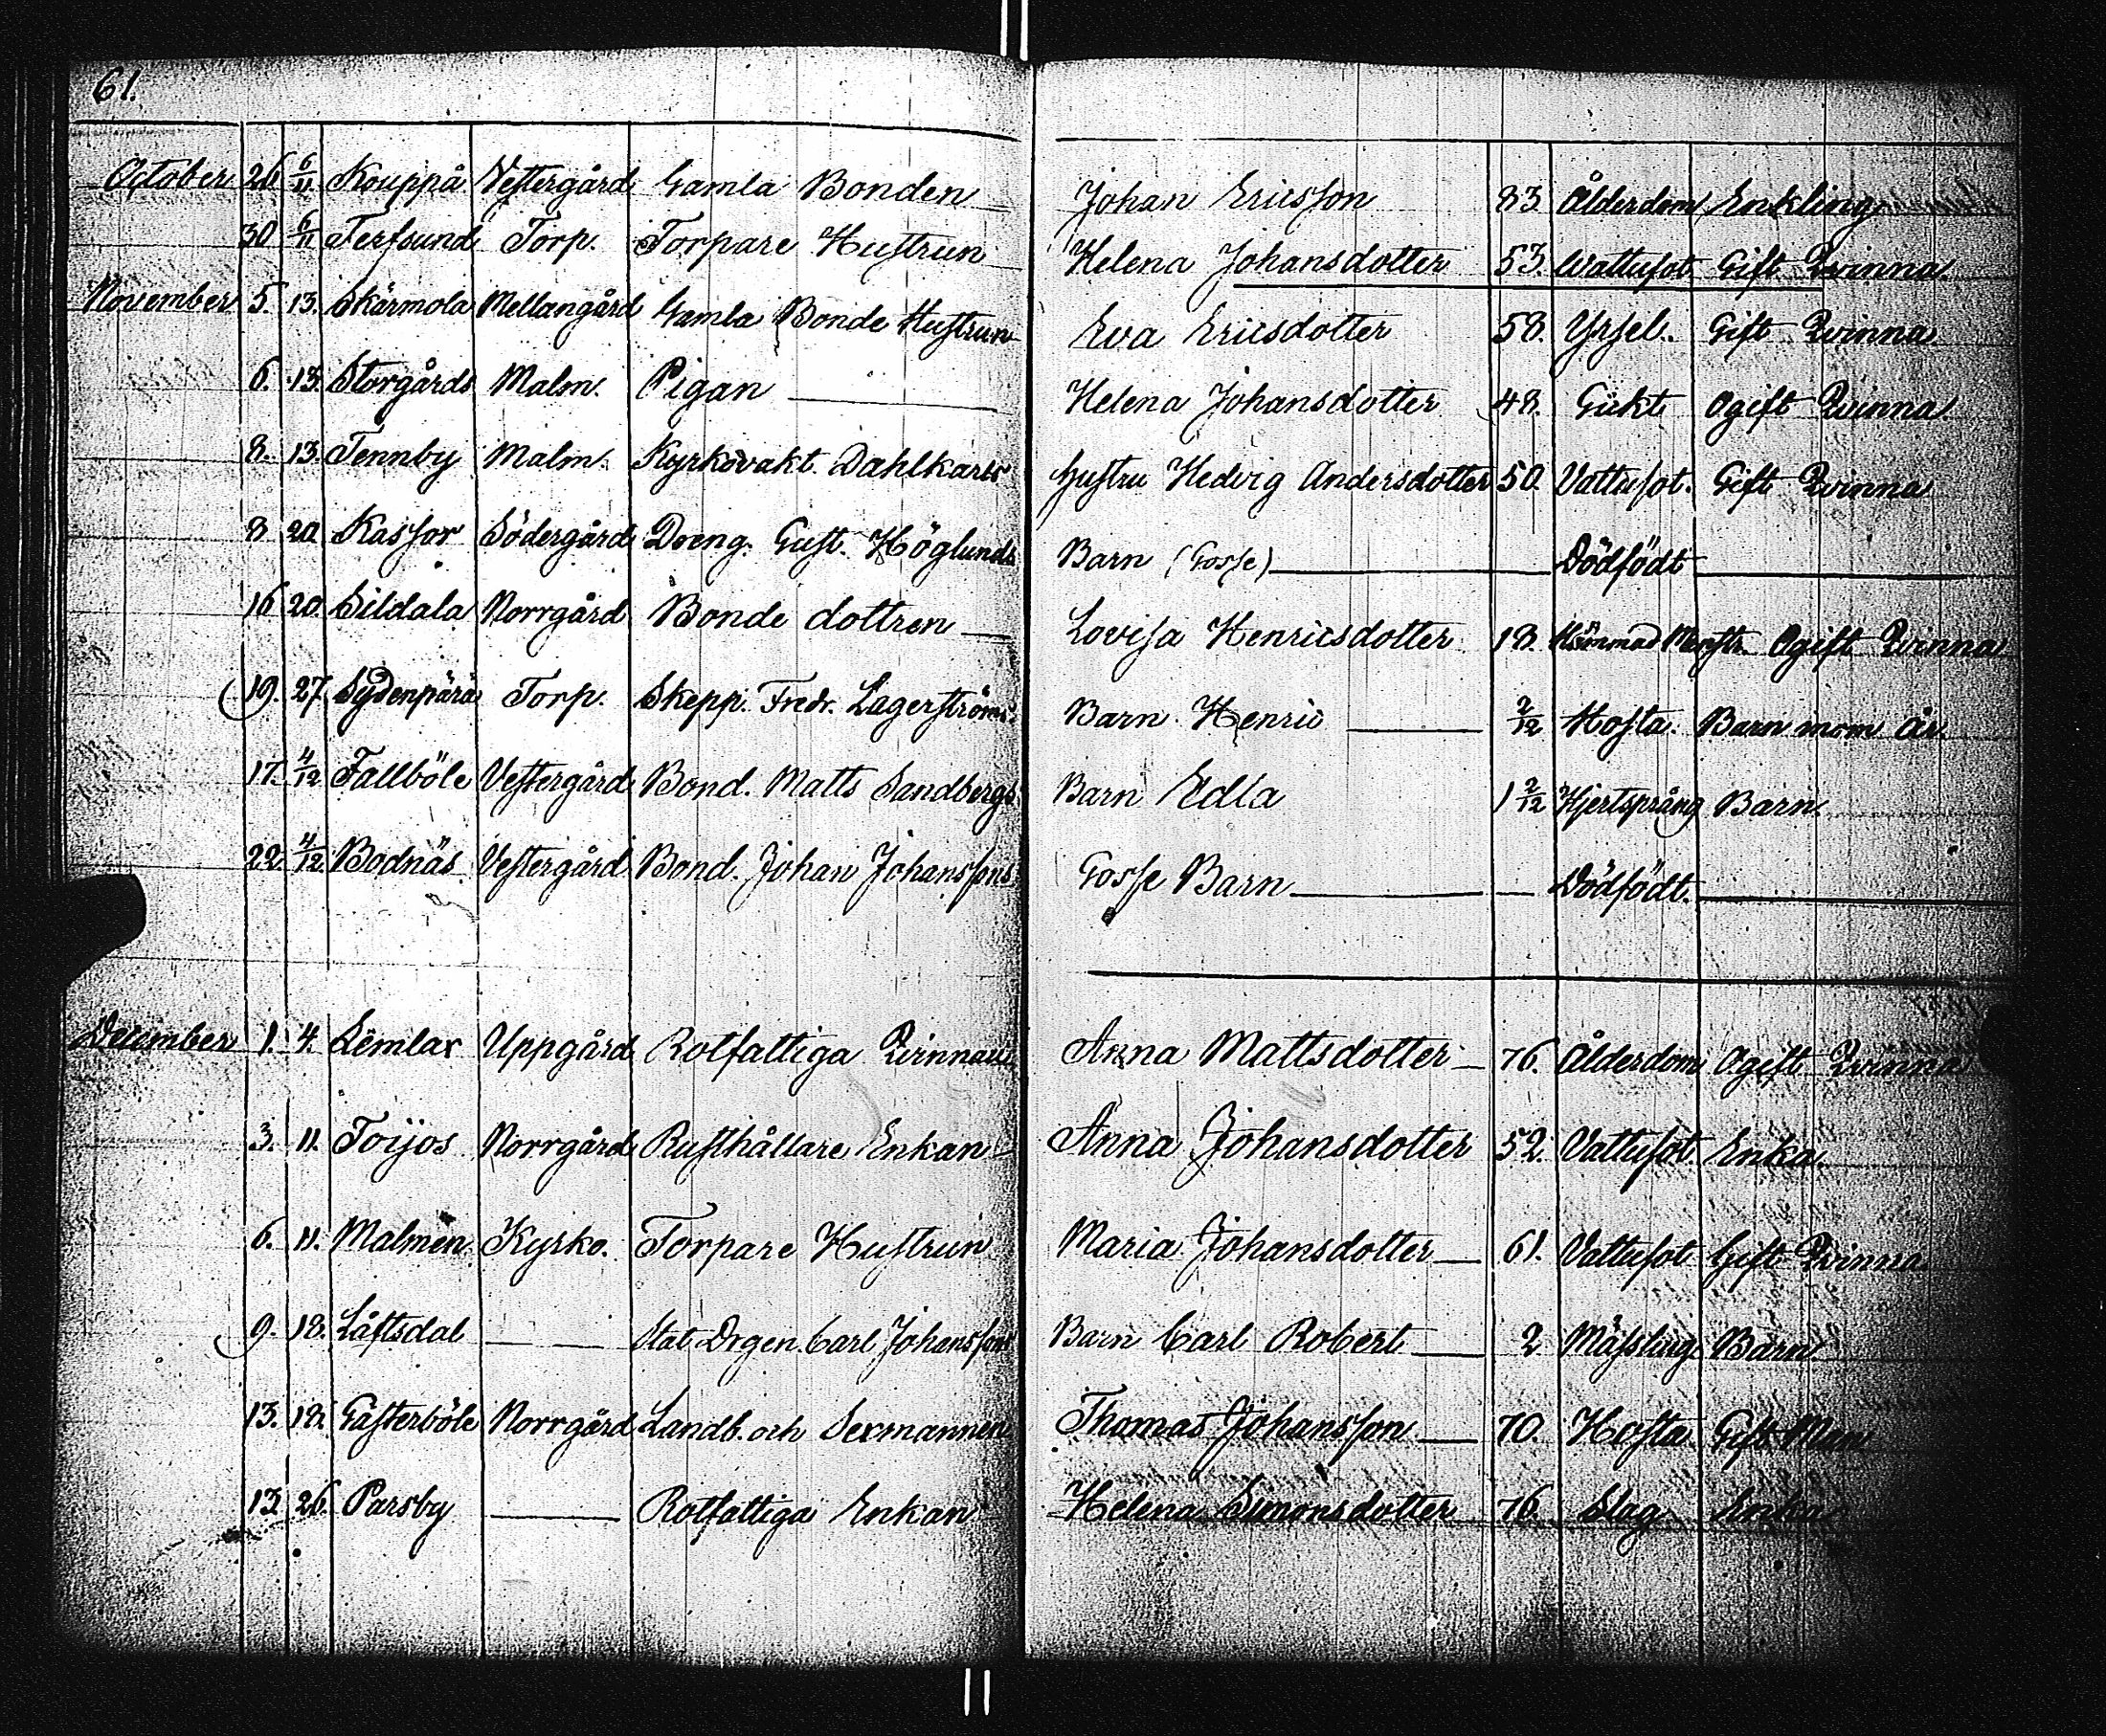 61.
October 26 6/11 Kouppå Vestergård Gamla Bonden Johan Ericsson 83 Ålderdom Enkling
30 6/11 Terfsund Torp. Torpare Hustrun Helena Johansdotter 53. Wattusot Gift Qvinna
November 5. 13. Skärmola Mellangård Gamla Bonde Hustrun Eva Ericsdotter 58. Gift Qvinna
6. 13. Storgårds Malm. Pigan Helena Johansdotter 48. Gickt Ogift Qvinna
8. 13. Tennby Malm. Kyrkovakt. Dahlkarls Hustru Hedvig Andersdotter 50. Vattusot. Gift Qvinna
8 20 Kassor Södergård Dreng. Gust. Höglunds Barn (Gosse) Dödfödt
16 20. Sildala Norrgård Bonde dottren Lovisa Henricsdotter 18. Ogift Qvinna
19. 27. Sydenperä Torp. Skepp. Fredr. Lagerströms Barn Henric 2/12 Hosta. Barn inom år
17. 4/12 Fallböle Vestergård Bond. Matts Sandbergs Barn Edla 1 2/12 Hjertsprång Barn.
22. 4/12 Bodnäs Vestergård Bond. Johan Johanssons Gosse Barn Dödfödt.
December 1. 4. Lemlax Uppgård Rotfattiga Qvinnan Anna Mattsdotter 76. Ålderdom Ogift Qvinna
3. 11. Toijos Norrgård Rusthållare Enkan Anna Johansdotter 52. Vattusot. Enka.
6. 11. Malmen. Kyrko. Torpare Hustrun Maria Johansdotter 61. Vattusot Gift Qvinna
9. 18. Låftsdal Stat Drgen. Carl Johanssons Barn Carl Robert 2 Mässling Barn.
13. 18. Gästerböle Norrgård Landb. och Sexmannen Thomas Johansson 70. Hosta. Gift Man
13. 26. Parsby Rotfattiga Enkan Helena Simonsdotter 76. Slag Enka